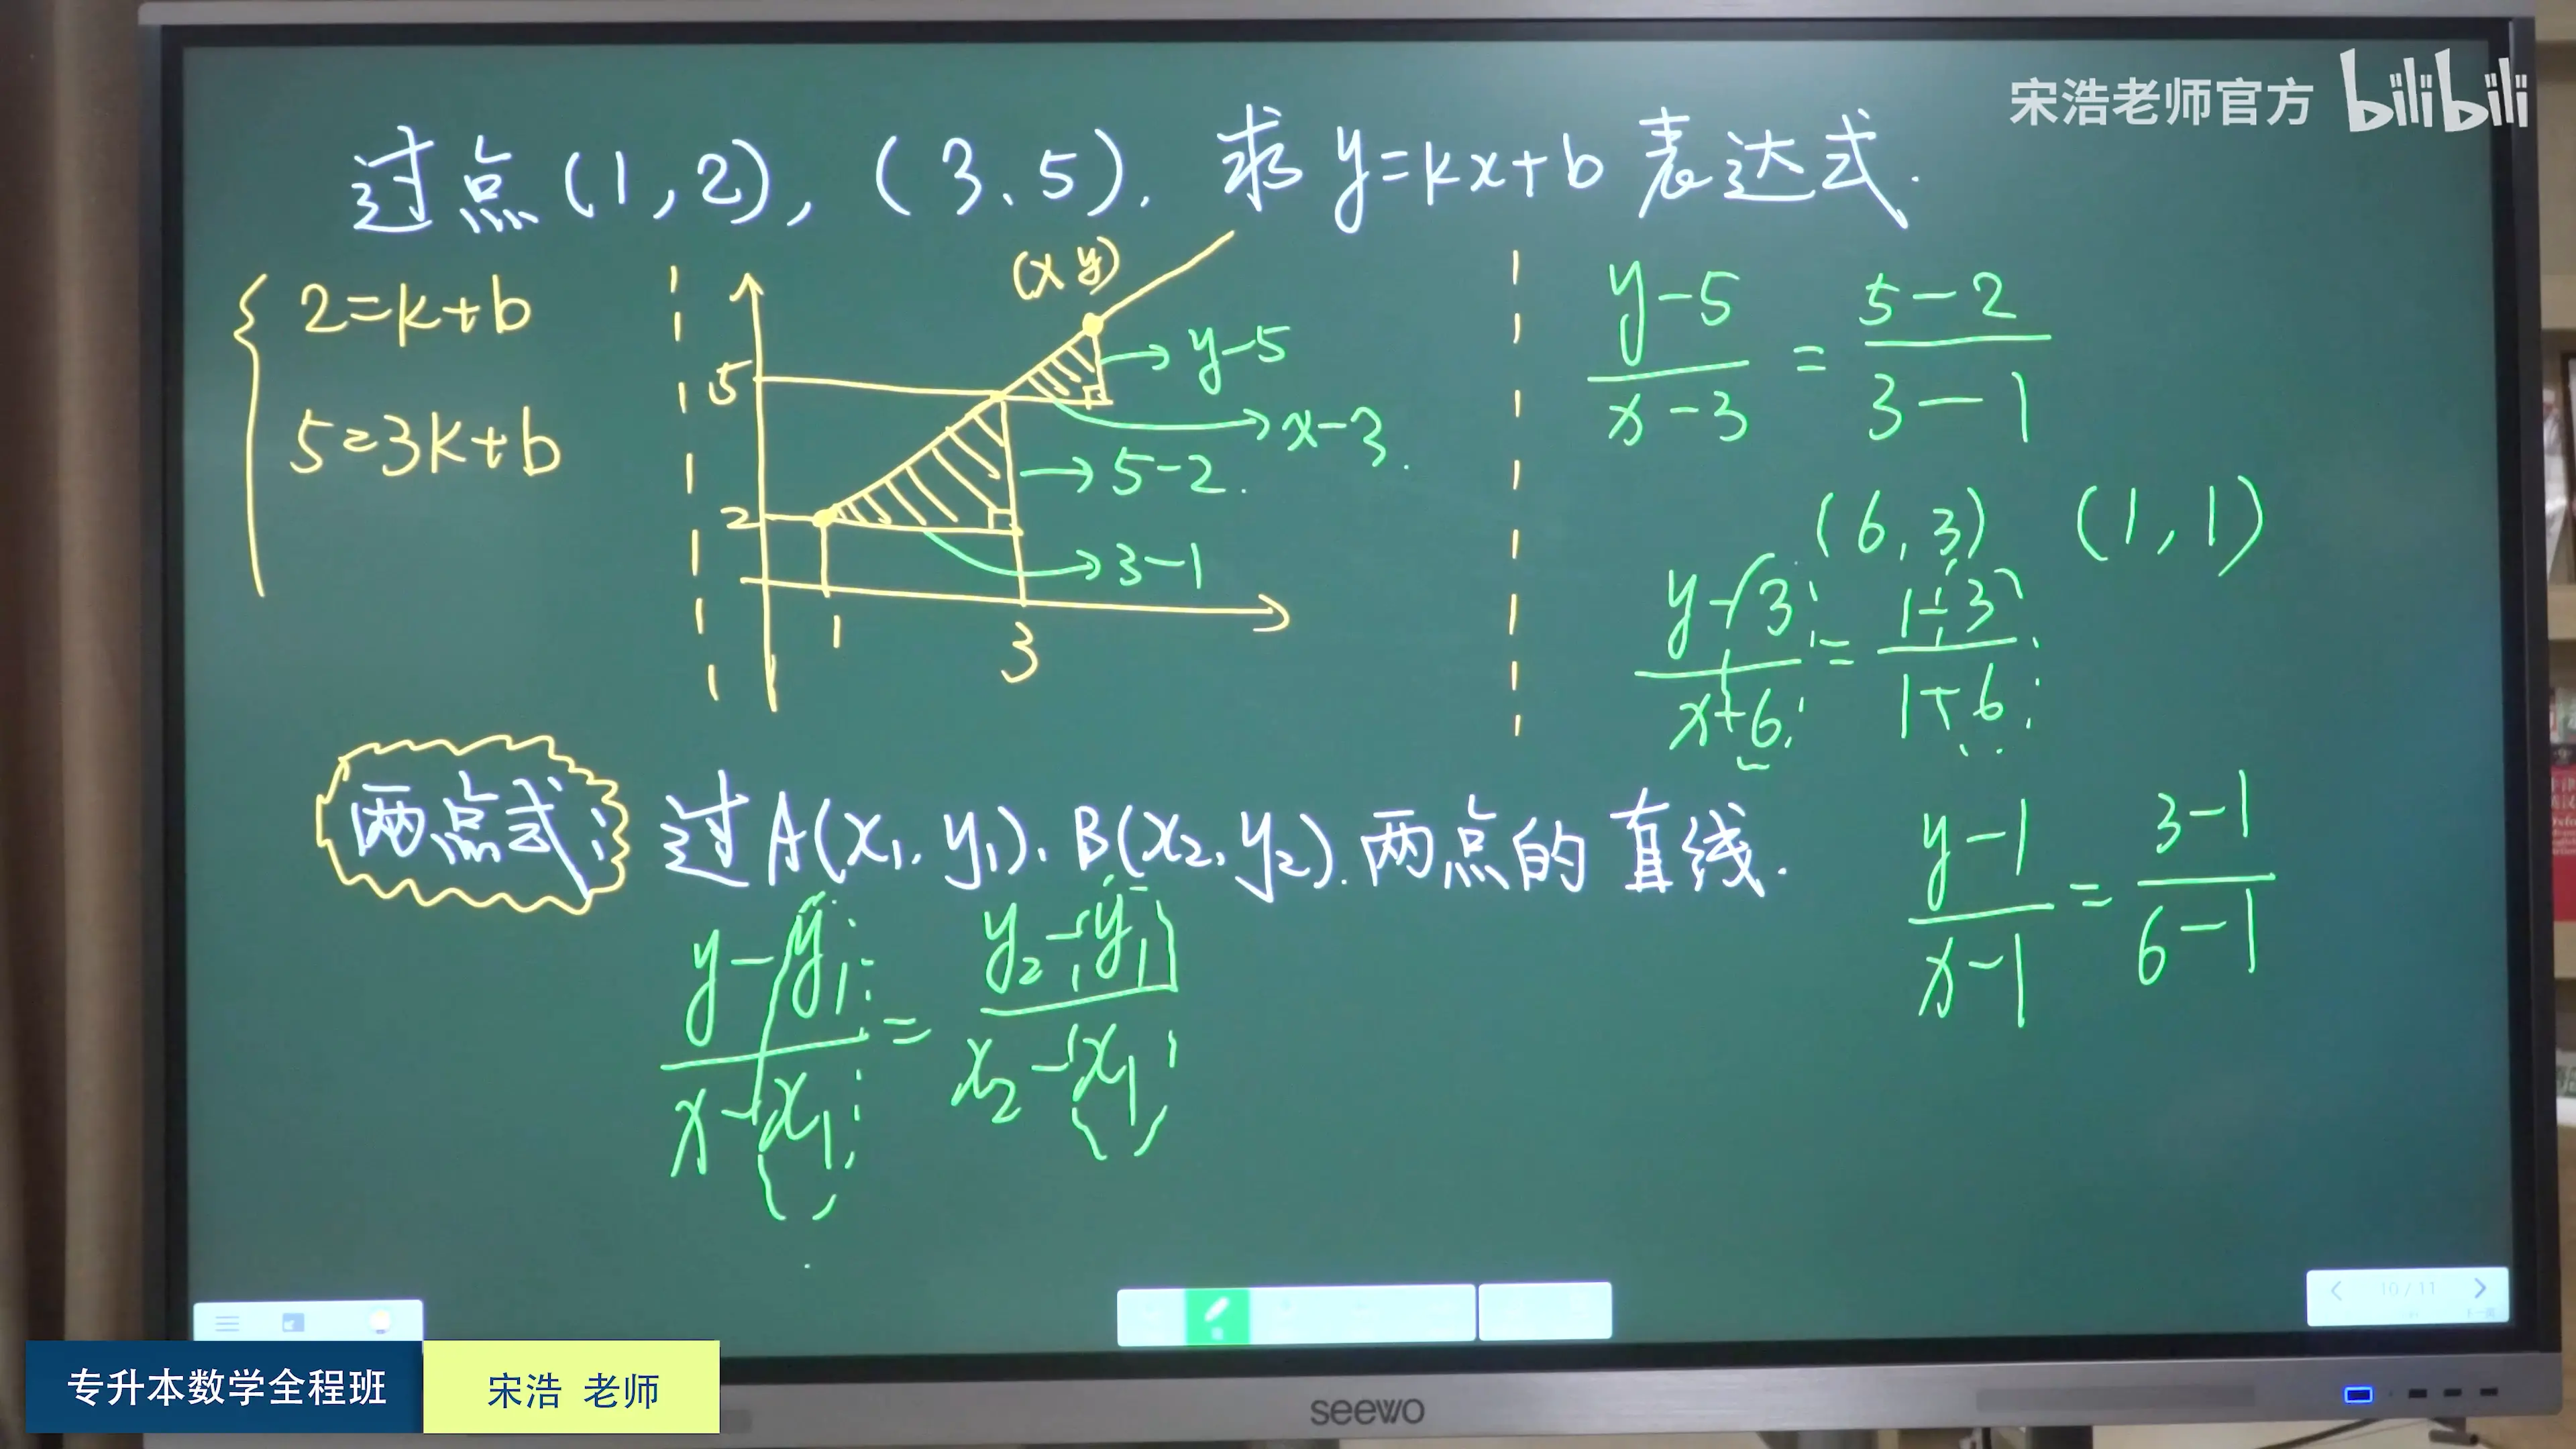 宋浩老师官方 bilibili
过点(1,2),(3、5).求y=kx+b表达式.
2=k+b
5=3k+b
(x y)
5
2
1
3
y-5
x-3.
5-2.
3-1
y-5/x-3 = 5-2/3-1
(6,3) (1,1)
y-3/x-6 = 1-3/1-6
y-1/x-1 = 3-1/6-1
两点式: 过A(x₁,y₁)、B(x₂,y₂).两点的直线.
y-y₁/x-x₁ = y₂-y₁/x₂-x₁
10/11
专升本数学全程班 宋浩 老师
seewo